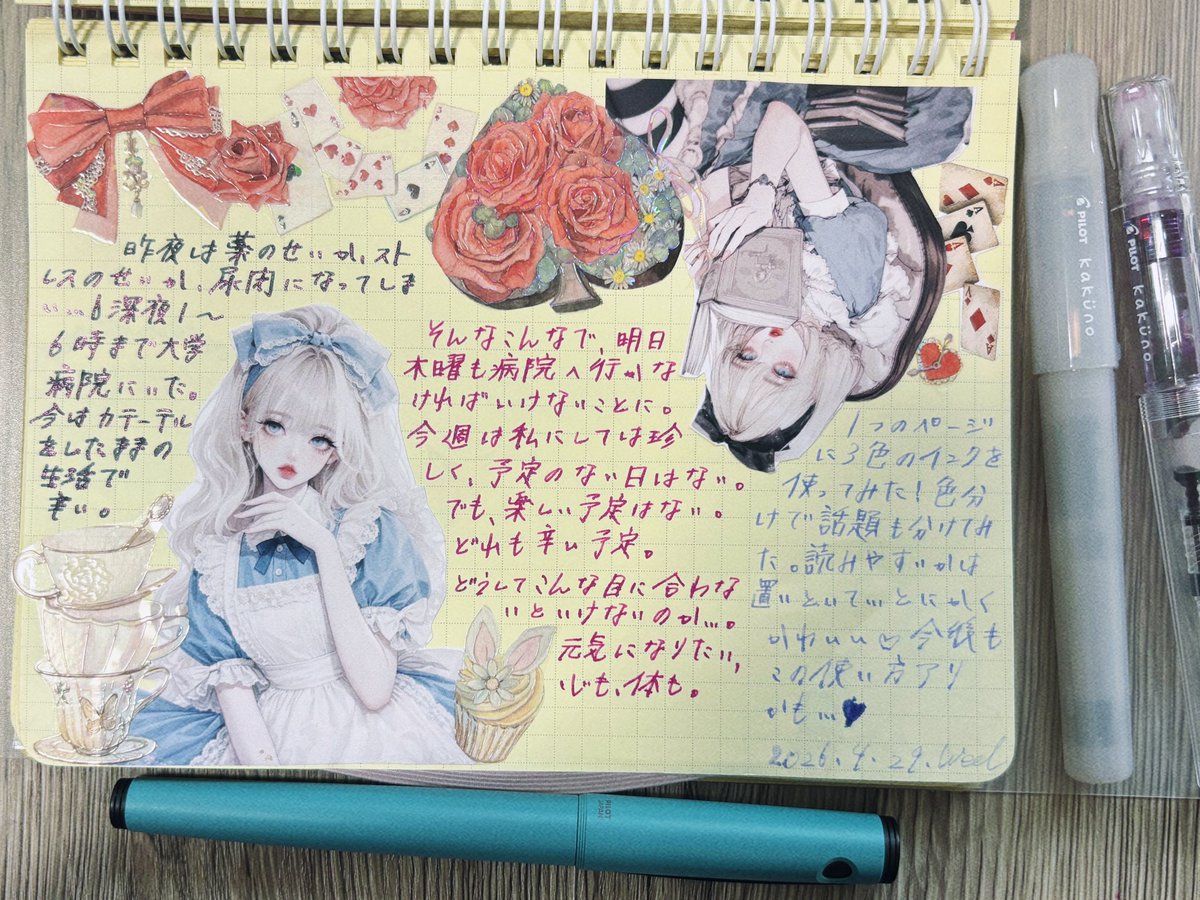 昨夜は薬のせいか、スト
レスのせいか、尿閉になってしま
い…。深夜1〜
6時まで大学
病院にいた。
今はカテーテル
をしたままの
生活で
辛い。
そんなこんなで、明日
木曜も病院へ行かな
ければいけないことに。
今週は私にしては珍
しく、予定のない日はない。
でも、楽しい予定はない。
どれも辛い予定。
どうしてこんな目に合わな
いといけないのか…。
元気になりたい、
心も、体も。
1つのページ
に3色のインクを
使ってみた!色分
けで話題も分けてみ
た。読みやすいかは
置いといていとにかく
かわいい♡今後も
この使い方アリ
かも…♥
2026.4.29.Wed
PILOT kaküno
PILOT kaküno
PILOT
JAPAN